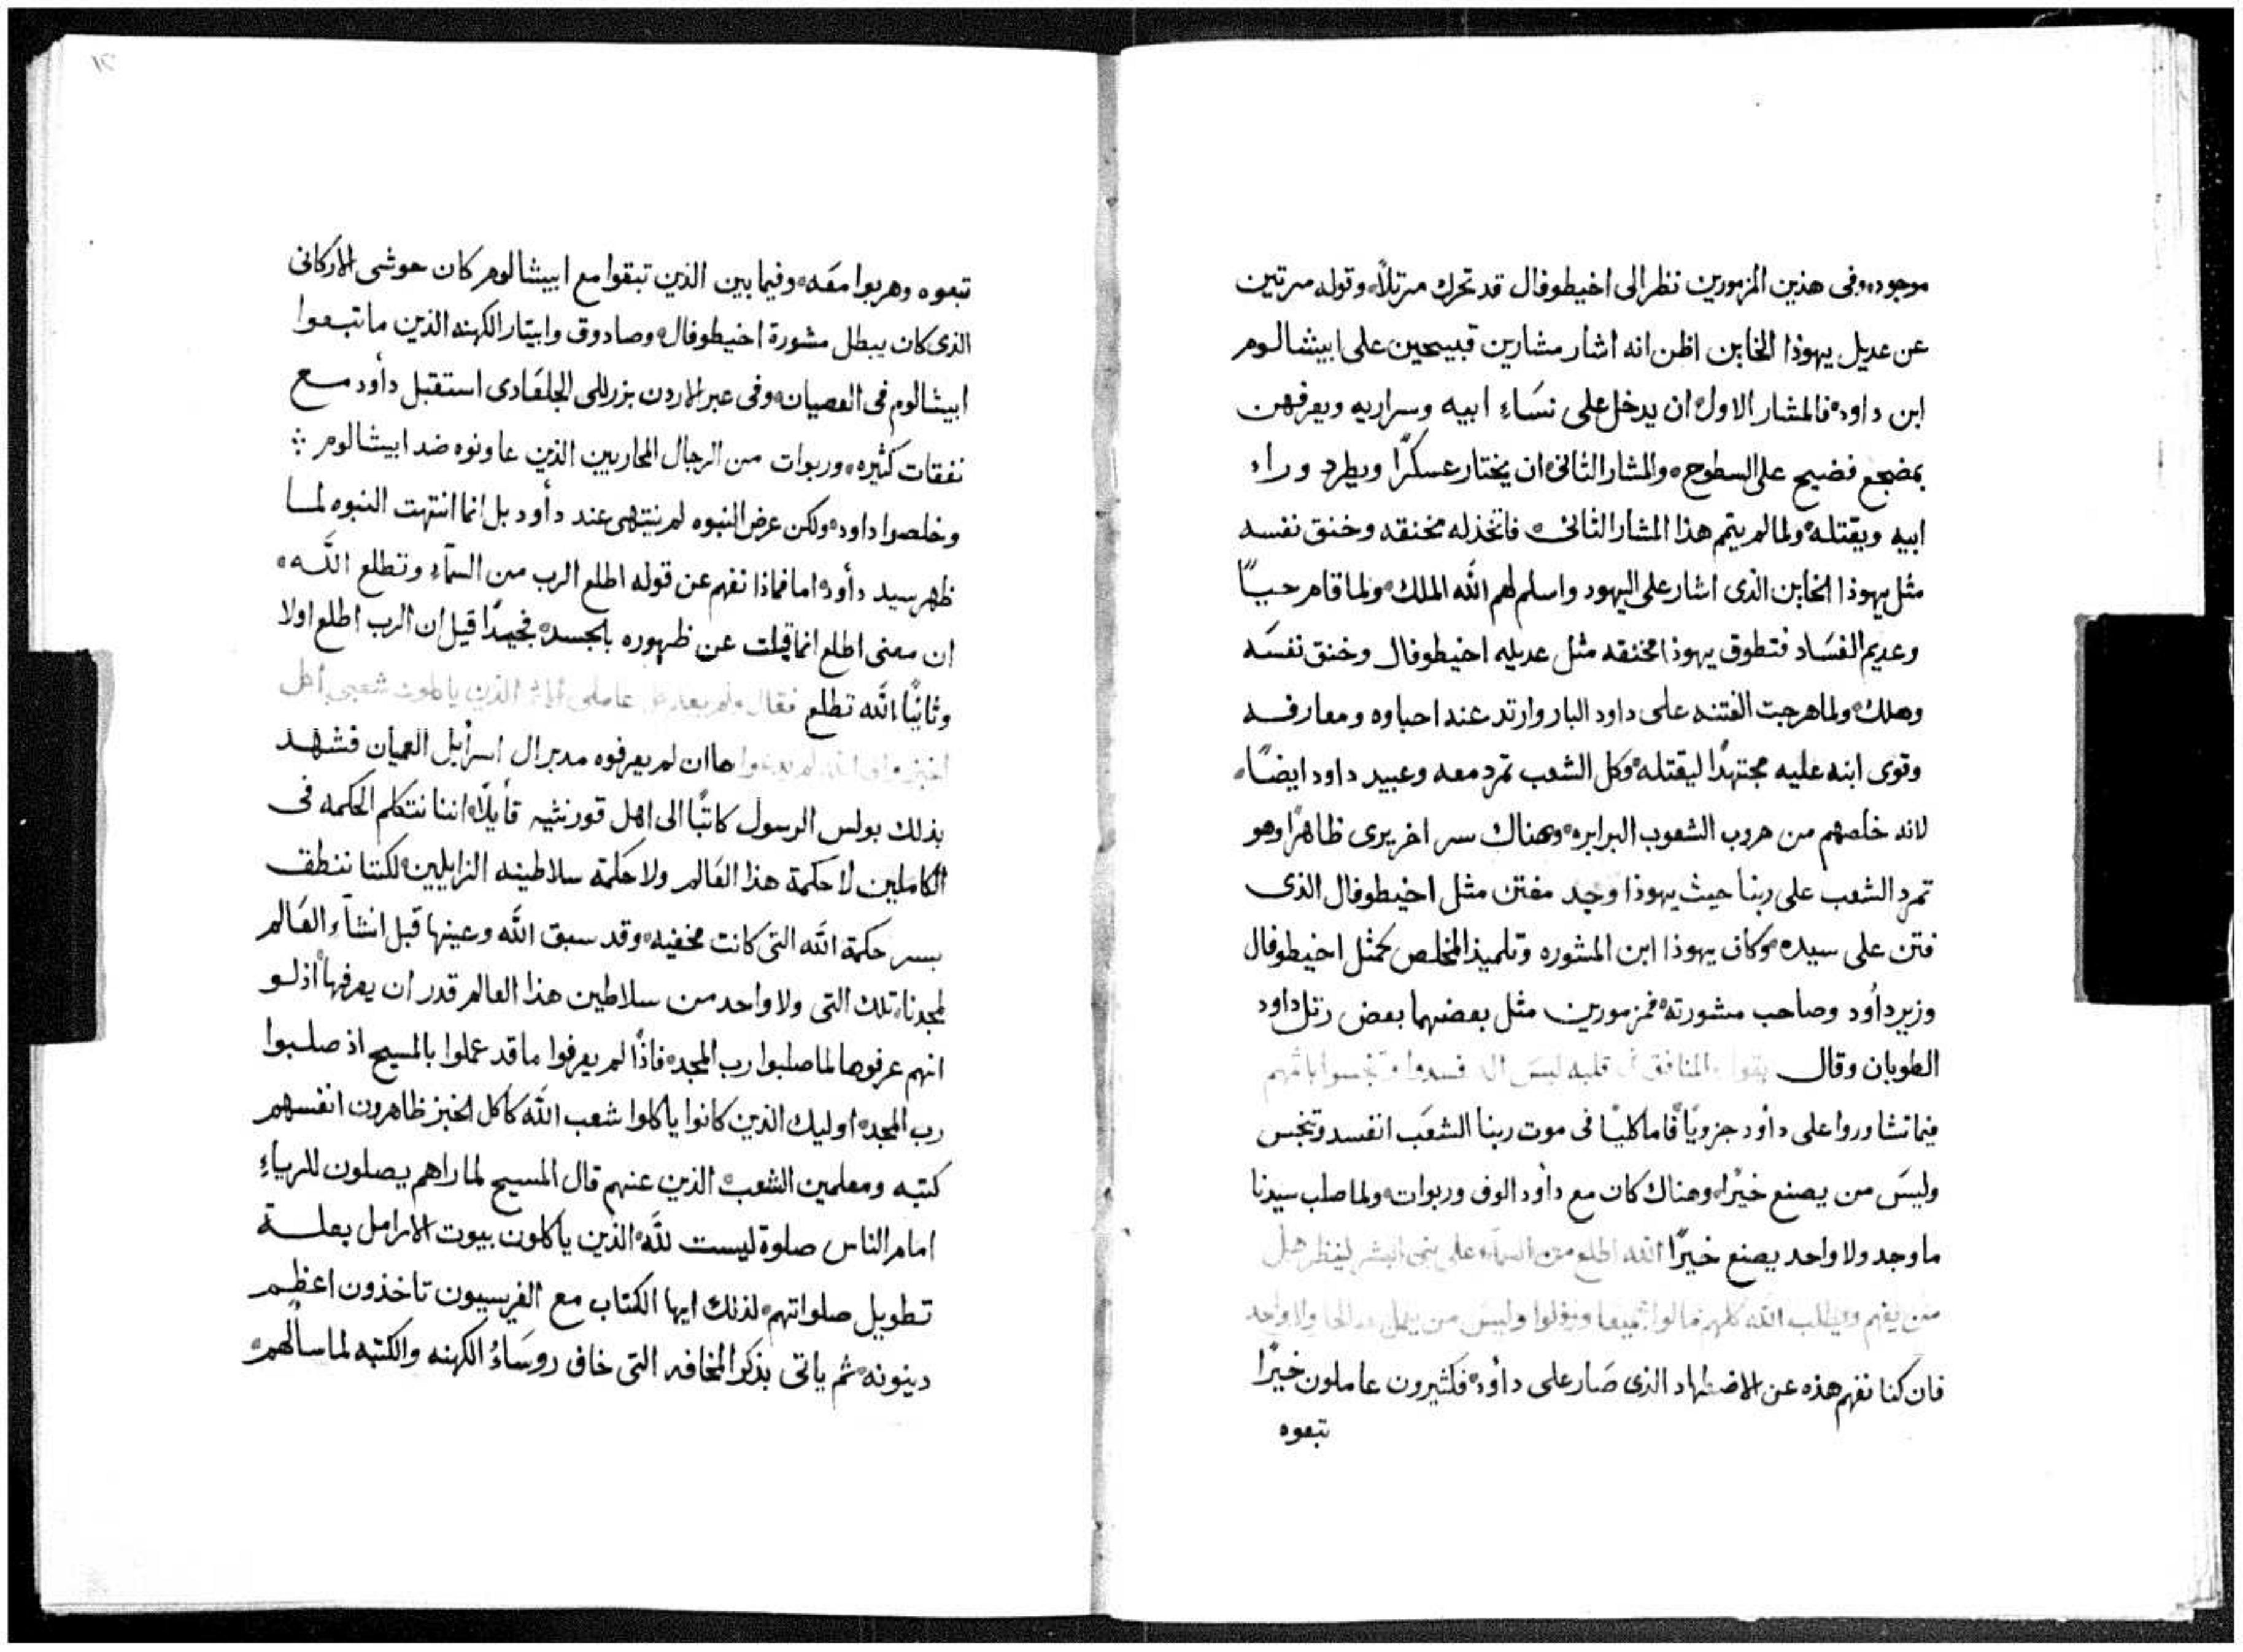 موجوده وفى هذين المزمورين نظر الى اخيطوفال قد تحرك مرتلاً وقوله مرتين
عن عديل يهوذا الخاين اظن انه اشار مشارين قبيحين على ابيشالوم
ابن داود فالمشار الاول ان يدخل على نسَاء ابيه وسراريه ويعرفهن
بمضجع فضيح على السطوح والمشار الثانى ان يختار عسكرًا ويطرد وراء
ابيه ويقتله ولما لم يتم هذا المشار الثانى فاتخذ له مخنقه وخنق نفسه
مثل يهوذا الخاين الذى اشار على اليهود واسلم لهم الله الملك ولما قام حيـًا
وعديم الفسَاد فتطوق يهوذا مخنقه مثل عديله اخيطوفال وخنق نفسَه
وهلك ولما هرجت الفتنه على داود البار وارتد عند احباوه ومعارفه
وقوى ابنه عليه مجتهدًا ليقتله وكل الشعب تمرد معه وعبيد داود ايضًا
لانه خلصهم من هروب الشعوب البرابره وهناك سر اخر يرى ظاهرًا وهو
تمرد الشعب على ربنا حيث يهوذا وجد مفتن مثل اخيطوفال الذى
فتن على سيده وكان يهوذا ابن المشوره وتلميذ المخلص كمثل اخيطوفال
وزير داود وصاحب مشورته فمزمورين مثل بعضهما بعض رتل داود
الطوبان وقال يقول المنافق فى قلبه ليسَ اله فسدوا وتنجسوا باثمهم
فيما تشاوروا على دأود جزويًا فاما كليًا فى موت ربنا الشعَب انفسد وتنجس
وليسَ من يصنع خيرًا وهناك كان مع دأود الوف وربوات ولما صلب سيدنا
ما وجد ولا واحد يصنع خيرًا الله اطلع من السمآء على بنى البشر لينظر هل
من يفهم ويطلب الله كلهم مالوا جميعا ورذلوا وليس من يعمل صالحا ولا واحد
فان كنا نفهم هذه عن الاضطهاد الذى صَار على دأود فكثيرون عاملون خيرًا
تبعوه
تبعوه وهربوا معَه وفيما بين الذين تبقوا مع ابيشالوم كان حوشى الاركانى
الذى كان يبطل مشورة اخيطوفال وصادوق وابيتار الكهنه الذين ما تبعوا
ابيشالوم فى العصيان وفى عبر الاردن بزرللى الجلعَادى استقبل دأود مع
نفقات كثيره وربوات من الرجال المحاربين الذين عاونوه ضد ابيشالوم
وخلصوا داود ولكن عرض النبوه لم ينتهى عند دأود بل انما انتهت النبوه لما
ظهر سيد دأود اما فماذا نفهم عن قوله اطلع الرب من السمآء وتطلع الله
ان معنى اطلع انما قيلت عن ظهوره بالجسد فجيدًا قيل ان الرب اطلع اولا
وثانيًا الله تطلع فقال ولم يعلم كل عاملى الاثم الذين ياكلون شعبى أكل
الخبز والله لم يدعوا ها ان لم يعرفوه مدبر ال اسرأيل العميان فشهد
بذلك بولس الرسول كاتبًا الى اهل قورنثيه قأيلًا اننا نتكلم الحكمه فى
الكاملين لا حكمة هذا العَالم ولا حكمة سلاطينه الزايلين لكننا ننطق
بسر حكمة الله التى كانت مخفيه وقد سبق الله وعينها قبل انشآء العَالم
لمجدنا تلك التى ولا واحد من سلاطين هذا العالم قدر ان يعرفها اذ لو
انهم عرفوها لما صلبوا رب المجد فاذًا لم يعرفوا ما قد عملوا بالمسيح اذ صلبوا
رب المجد اوليك الذين كانوا ياكلوا شعب الله كاكل الخبز ظاهرون انفسهم
كتبه ومعلمين الشعب الذين عنهم قال المسيح لما راهم يصلون للرياء
امام الناس صلوة ليست لله الذين ياكلون بيوت الارامل بعلة
تطويل صلواتهم لذلك ايها الكتاب مع الفريسيون تاخذون اعظم
دينونه ثم ياتى بذكر المخافه التى خاف روسَاء الكهنه والكتبه لما سألهم